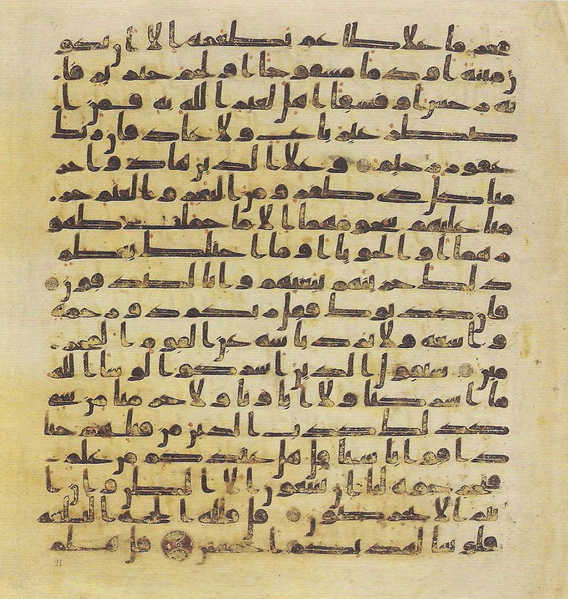 محرما على طاعم يطعمه الا ان يكو
ن ميته او دما مسفوحا او لحم خنزير فا
نه رجس او فسقا اهل لغير الله به فمن ا
ضطر غير باغ ولا عاد فان ربك
غفور رحيم وعلى الذين هادوا حر
منا كل ذي ظفر ومن البقر والغنم حر
منا عليهم شحومهما الا ما حملت ظهو
رهما او الحوايا او ما اختلط بعظم
ذلك جزينهم ببغيهم وانا لصدقون
فان كذبوك فقل ربكم ذو رحمه
واسعه ولا يرد باسه عن القوم المجر
مين سيقول الذين اشركوا لو شا الله
ما اشركنا ولا اباونا ولا حرمنا من شي
كذلك كذب الذين من قبلهم حتى
ذاقوا باسنا قل هل عندكم من علم
فتخرجوه لنا ان تتبعون الا الظن وان ا
نتم الا تخرصون قل فلله الحجه البلغه
فلو شا لهديكم اجمعين قل هلم